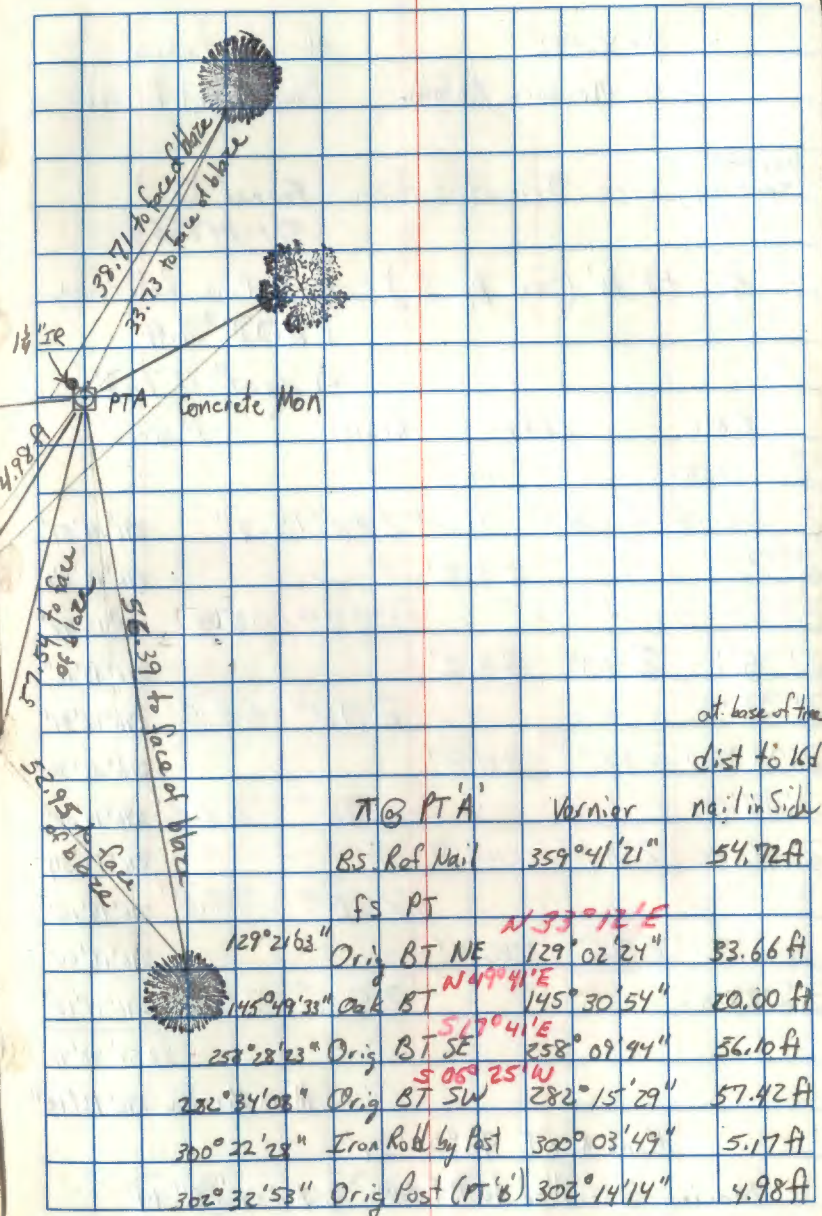 38.71 to face of blaze
33.73 to face of blaze
1¼" IR
PTA Concrete Mon
4.98 ft
57.54 to face
of blaze
56.39 to face of blaze
52.95 to face
of blaze
at base of tree
dist to 16d
π@ PT 'A' Vernier nail in Side
BS Ref Nail 359°41'21" 54.72ft
fs PT
N 33°12'E
129°21'03" Orig BT NE 129°02'24" 33.66 ft
N 49°41'E
145°49'33" Oak BT 145°30'54" 20.00 ft
S17°41'E
258°28'23" Orig BT SE 258°09'44" 56.10 ft
S 06°25'W
282°34'08" Orig BT SW 282°15'29" 57.42 ft
300°22'28" Iron Rod by Post 300°03'49" 5.17 ft
302°32'53" Orig Post (PT 'B') 302°14'14" 4.98 ft